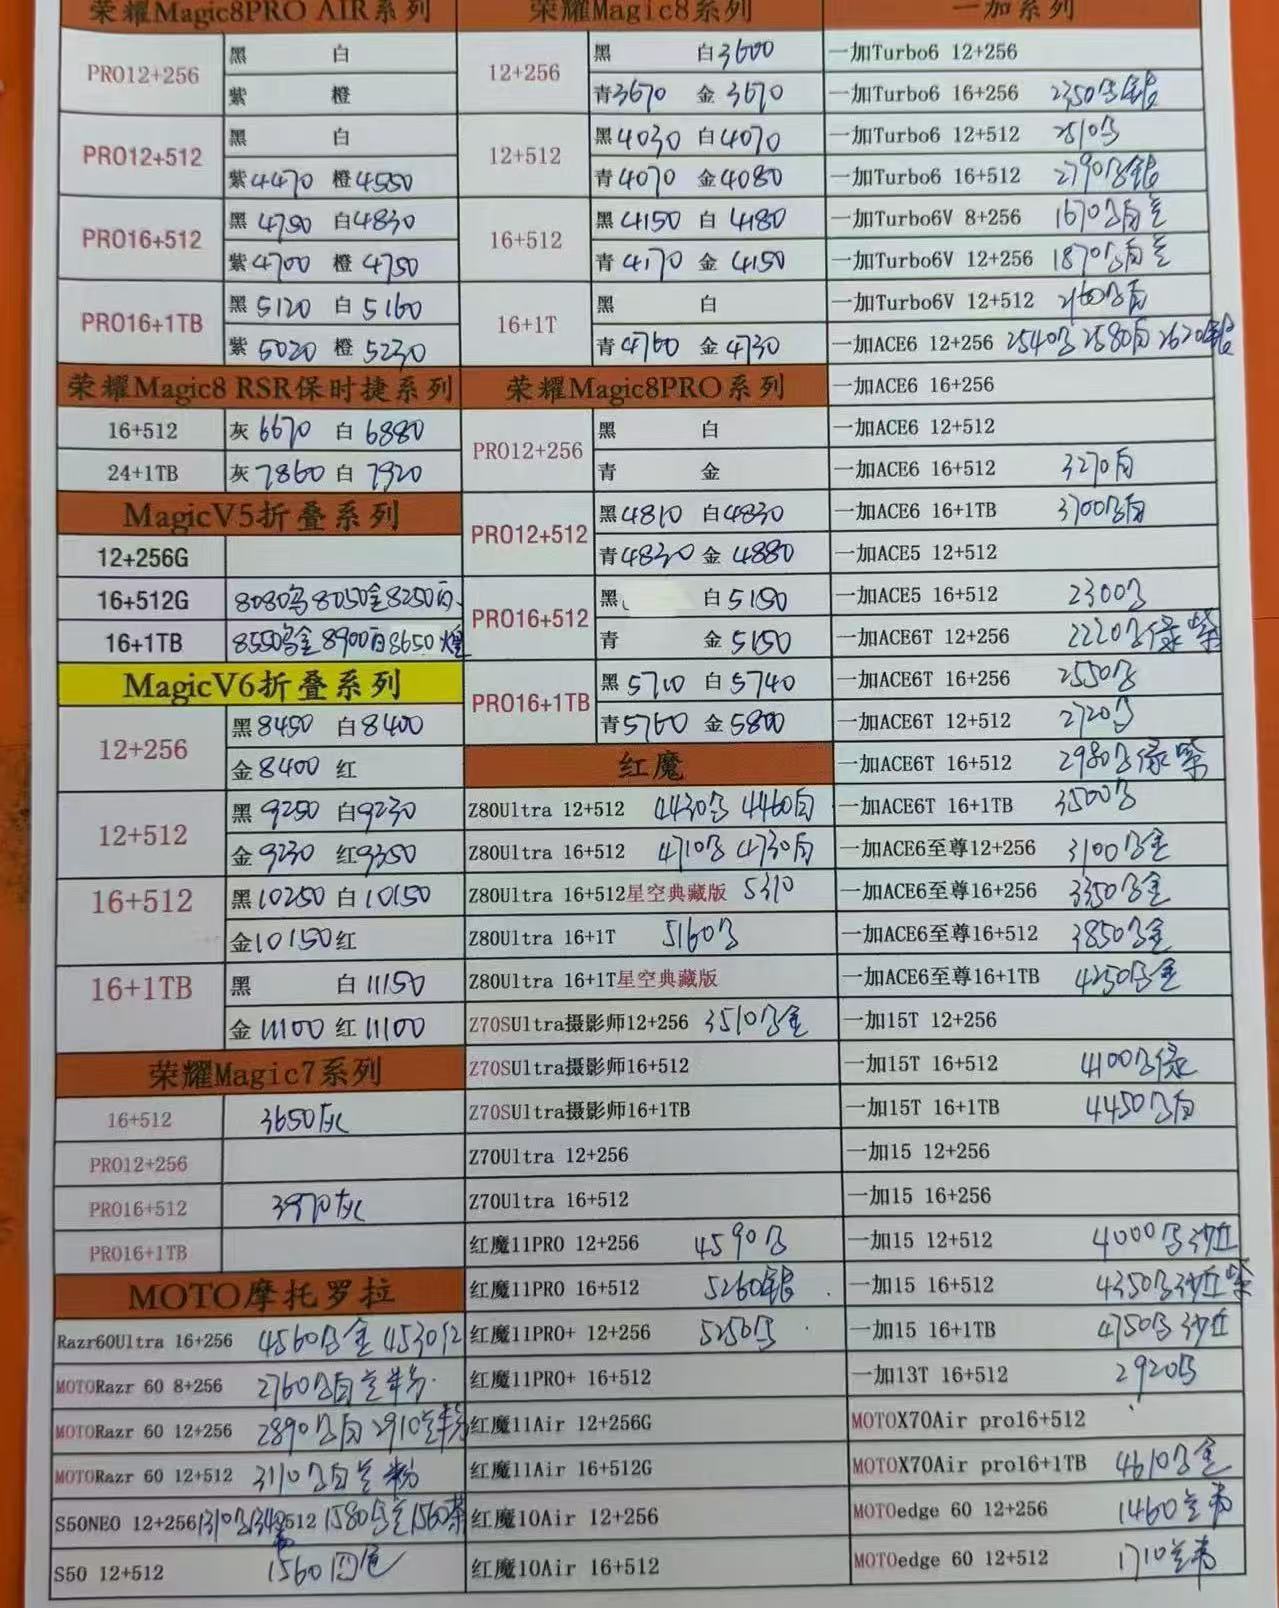 荣耀Magic8PRO AIR系列
PRO12+256 黑 白
紫 橙
PRO12+512 黑 白
紫4470 橙4550
PRO16+512 黑4750 白4830
紫4700 橙4750
PRO16+1TB 黑5120 白5160
紫5020 橙5230
荣耀Magic8 RSR保时捷系列
16+512 灰6670 白6880
24+1TB 灰7860 白7920
MagicV5折叠系列
12+256G
16+512G 8080 8050金8250白
16+1TB 8550 金8900白8650
MagicV6折叠系列
12+256 黑8450 白8400
金8400 红
12+512 黑9250 白9230
金9230 红9350
16+512 黑10250 白10150
金10150红
16+1TB 黑 白11150
金11100 红11100
荣耀Magic7系列
16+512 3650灰
PRO12+256
PRO16+512 3970灰
PRO16+1TB
MOTO摩托罗拉
Razr60Ultra 16+256 4560 金 4530红
MOTORazr 60 8+256 2760 白兰粉
MOTORazr 60 12+256 2890 白2910兰粉
MOTORazr 60 12+512 3110 白兰粉
S50NEO 12+256 1310 512 1580 兰1560
S50 12+512 1560四色
荣耀Magic8系列
12+256 黑 白3600
青3670 金3670
12+512 黑4030 白4070
青4070 金4080
16+512 黑4150 白4180
青4170 金4150
16+1T 黑 白
青4760 金4730
荣耀Magic8PRO系列
PRO12+256 黑 白
青 金
PRO12+512 黑4810 白4830
青4830 金4880
PRO16+512 黑 白5150
青 金5150
PRO16+1TB 黑5710 白5740
青5760 金5800
红魔
Z80Ultra 12+512 4430 4460白
Z80Ultra 16+512 4710 4730白
Z80Ultra 16+512星空典藏版 5310
Z80Ultra 16+1T 5160
Z80Ultra 16+1T星空典藏版
Z70SUltra摄影师12+256 3510 金
Z70SUltra摄影师16+512
Z70SUltra摄影师16+1TB
Z70Ultra 12+256
Z70Ultra 16+512
红魔11PRO 12+256 4590
红魔11PRO 16+512 5260银
红魔11PRO+ 12+256 5250
红魔11PRO+ 16+512
红魔11Air 12+256G
红魔11Air 16+512G
红魔10Air 12+256
红魔10Air 16+512
一加系列
一加Turbo6 12+256
一加Turbo6 16+256 2350 银
一加Turbo6 12+512 2510
一加Turbo6 16+512 2790 银
一加Turbo6V 8+256 1670 白兰
一加Turbo6V 12+256 1870 白兰
一加Turbo6V 12+512 2160 白
一加ACE6 12+256 2540 2580白 2620银
一加ACE6 16+256
一加ACE6 12+512
一加ACE6 16+512 3270白
一加ACE6 16+1TB 3700 白
一加ACE5 12+512
一加ACE5 16+512 2300
一加ACE6T 12+256 2220 绿紫
一加ACE6T 16+256 2550
一加ACE6T 12+512 2720
一加ACE6T 16+512 2980 绿紫
一加ACE6T 16+1TB 3500
一加ACE6至尊12+256 3100 金
一加ACE6至尊16+256 3350 金
一加ACE6至尊16+512 3850 金
一加ACE6至尊16+1TB 4250 金
一加15T 12+256
一加15T 16+512 4100 绿
一加15T 16+1TB 4450 白
一加15 12+256
一加15 16+256
一加15 12+512 4000 沙丘
一加15 16+512 4350 沙丘紫
一加15 16+1TB 4750 沙丘
一加13T 16+512 2920
MOTOX70Air pro16+512
MOTOX70Air pro16+1TB 4610 金
MOTOedge 60 12+256 1460兰韦
MOTOedge 60 12+512 1710兰韦